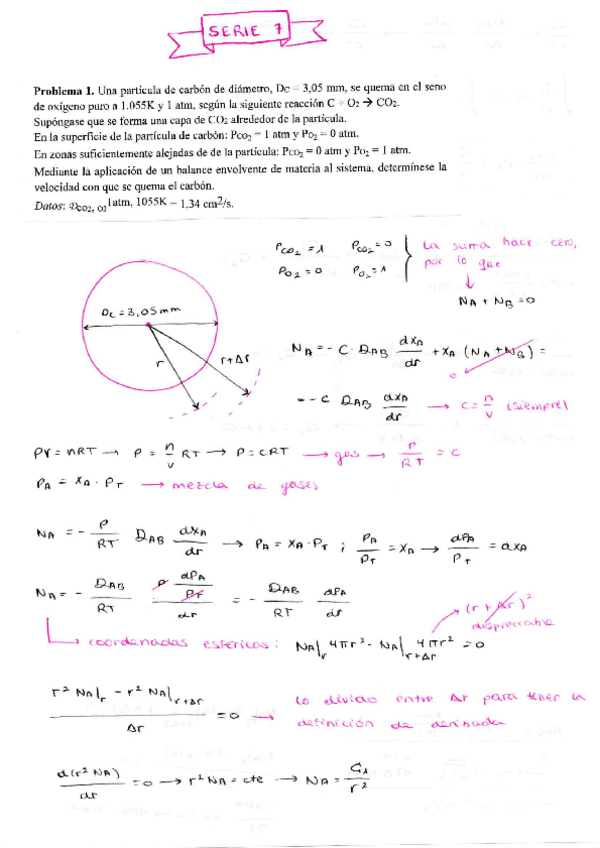 SERIE 7
Problema 1. Una partícula de carbón de diámetro, Dc = 3,05 mm, se quema en el seno
de oxígeno puro a 1.055K y 1 atm, según la siguiente reacción C + O₂ → CO₂.
Supóngase que se forma una capa de CO₂ alrededor de la partícula.
En la superficie de la partícula de carbón: Pco₂ = 1 atm y Po₂ = 0 atm.
En zonas suficientemente alejadas de de la partícula: Pco₂ = 0 atm y Po₂ = 1 atm.
Mediante la aplicación de un balance envolvente de materia al sistema, determínese la
velocidad con que se quema el carbón.
Datos: 𝒟CO2, O2 1atm, 1055K = 1,34 cm²/s.
PCO₂ = 1 PCO₂ = 0
PO₂ = 0 PO₂ = 1
La suma hace cero,
por lo que
↓
NA + NB = 0
Dc = 3,05 mm
r
r+Δr
NA = - C · DAB dxA/dr + xA (NA + NB) =
0
= - C DAB dxA/dr → C = n/V (siempre)
PV = nRT → P = n/V RT → P = CRT → gas → P/RT = C
PA = XA · PT → mezcla de gases
NA = - P/RT DAB dxA/dr → PA = XA · PT ; PA/PT = XA → dPA/PT = dXA
NA = - DAB/RT P dPA/PT/dr = - DAB/RT dPA/dr
(r + Δr)²
despreciable
coordenadas esféricas: NA|r 4πr² - NA|r+Δr 4πr² = 0
r² NA|r - r² NA|r+Δr / Δr = 0 → Lo divido entre Δr para tener la
definición de derivada
d(r² NA)/dr = 0 → r² NA = cte → NA = C1/r²